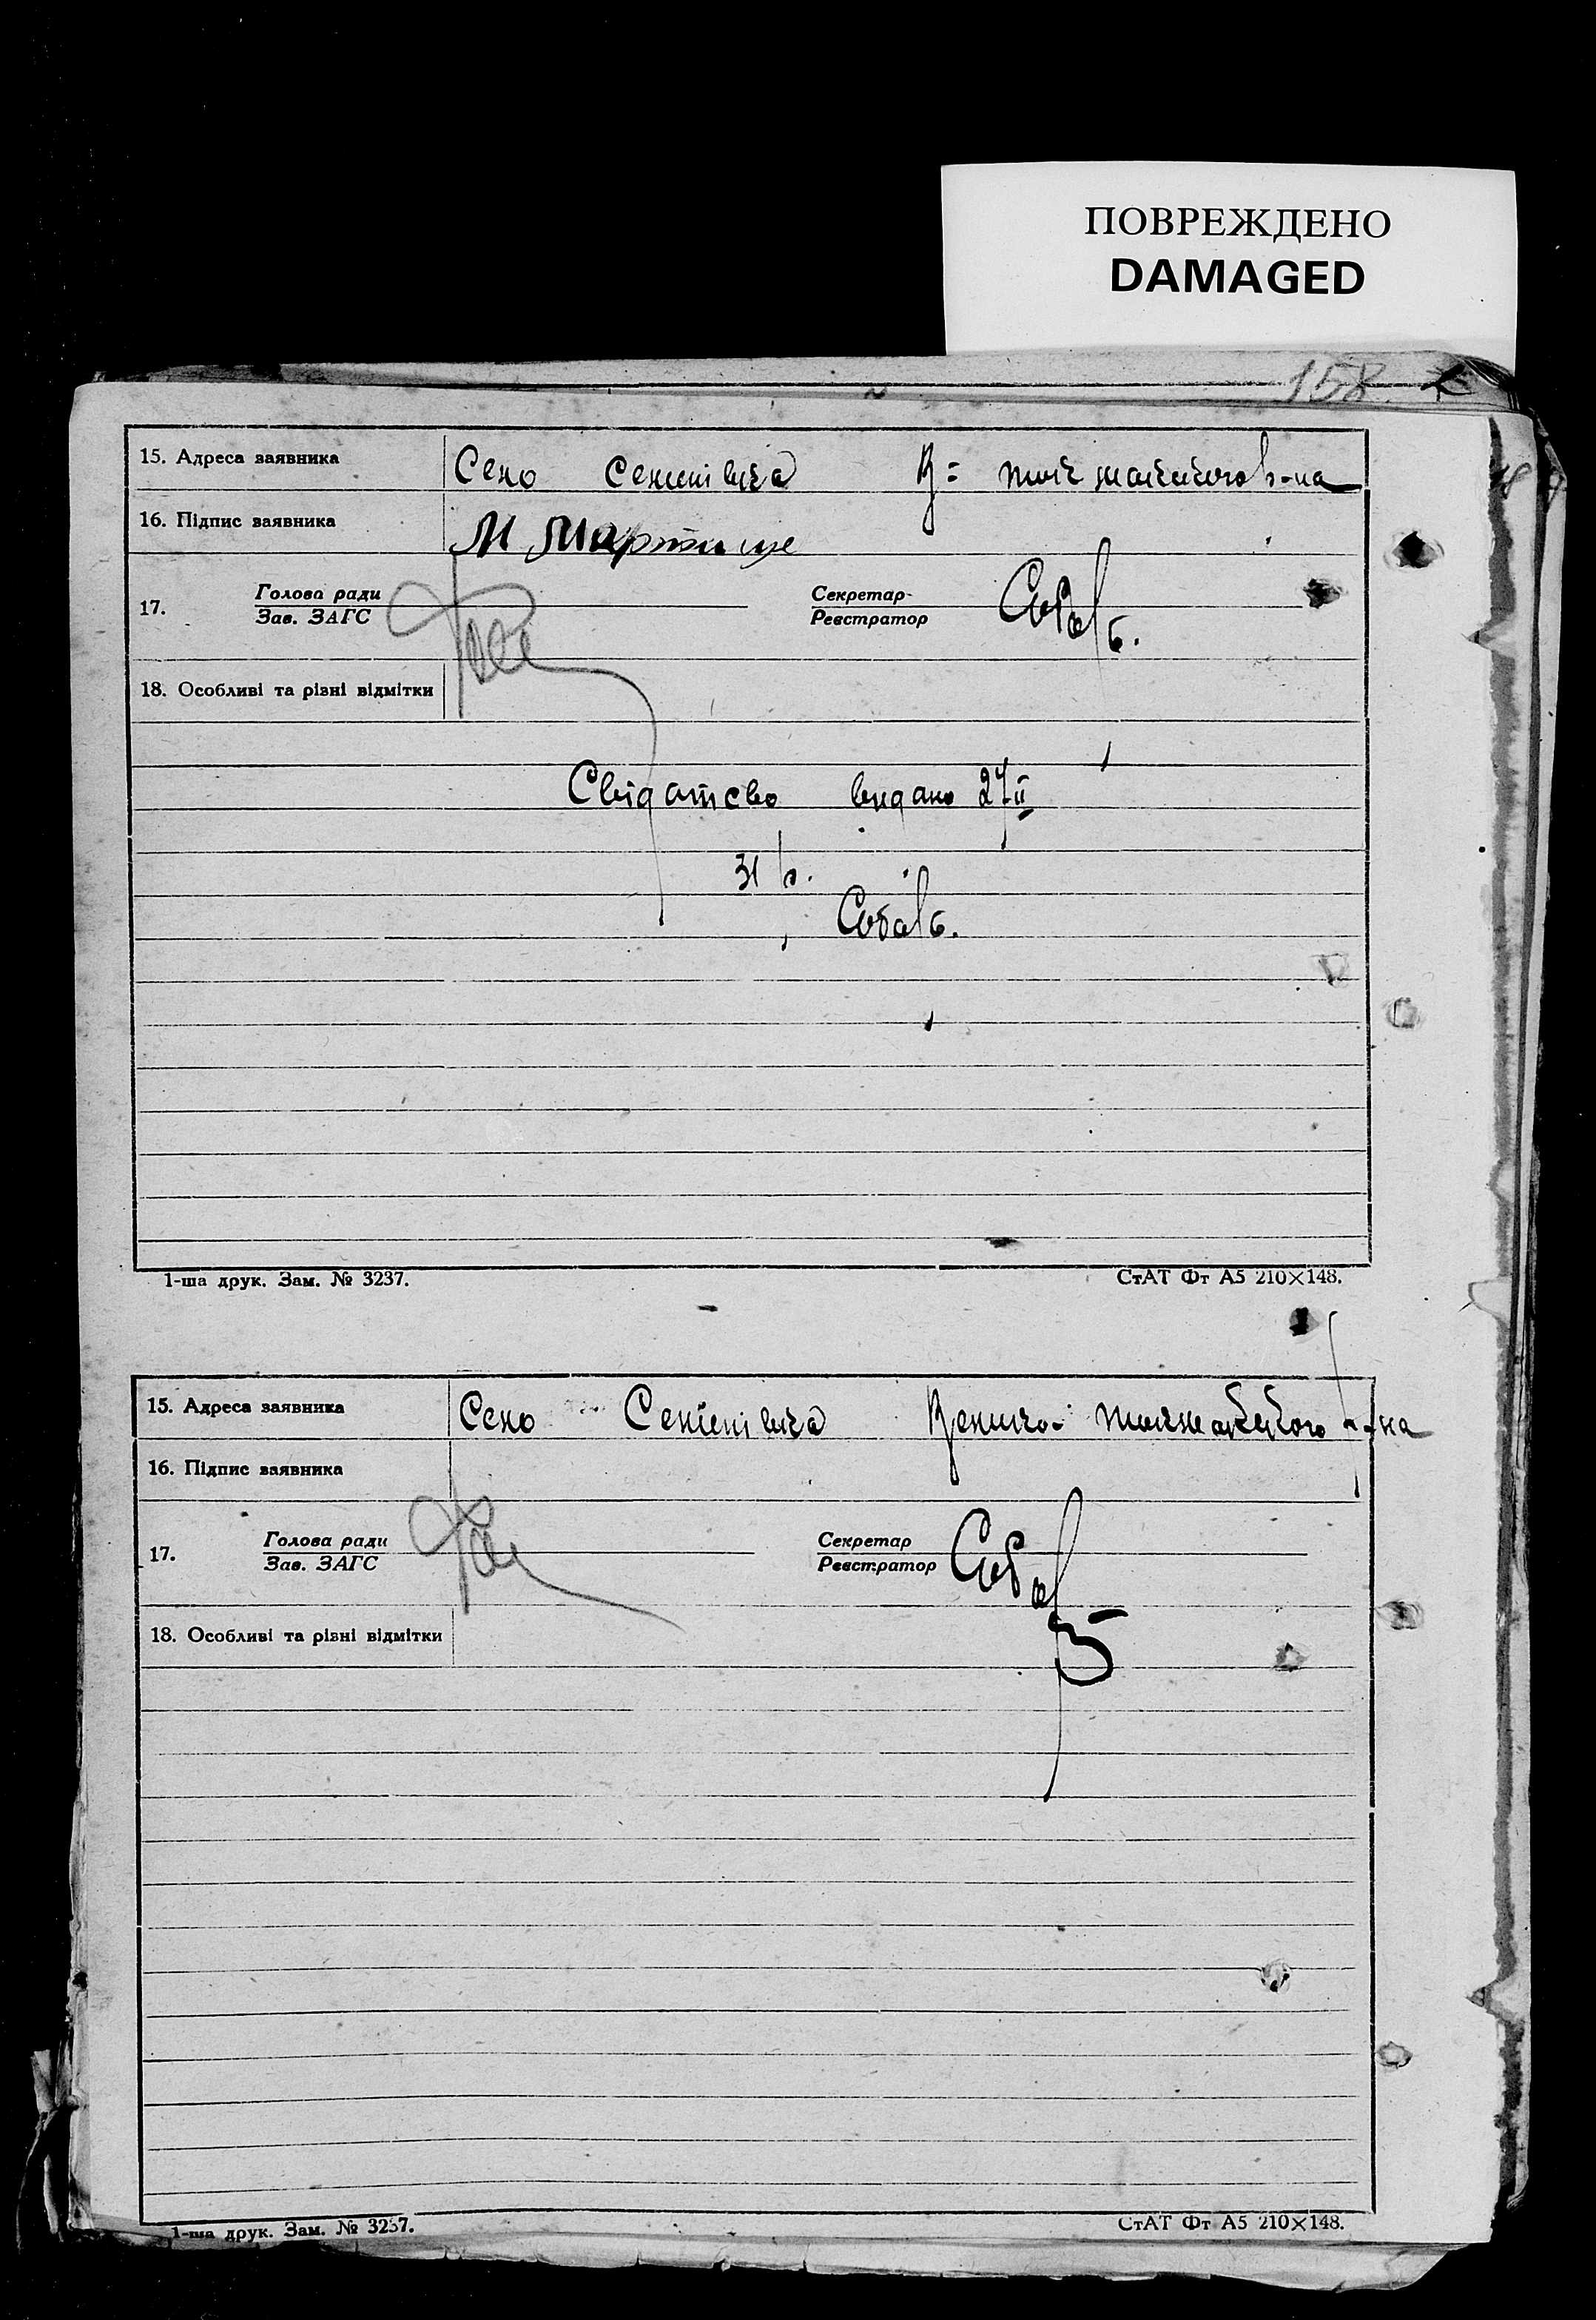 ПОВРЕЖДЕНО
DAMAGED
158
15. Адреса заявника Село
16. Підпис заявника М Мартище
17. Голова ради Секретар
Зав. ЗАГС Реєстратор
18. Особливі та різні відмітки
Свідатство видано 27/II
31 р.
1-ша друк. Зам. № 3237. СтАТ Фт А5 210×148.
15. Адреса заявника Село
16. Підпис заявника
17. Голова ради Секретар
Зав. ЗАГС Реєстратор
18. Особливі та різні відмітки
1-ша друк. Зам. № 3237. СтАТ Фт А5 210×148.